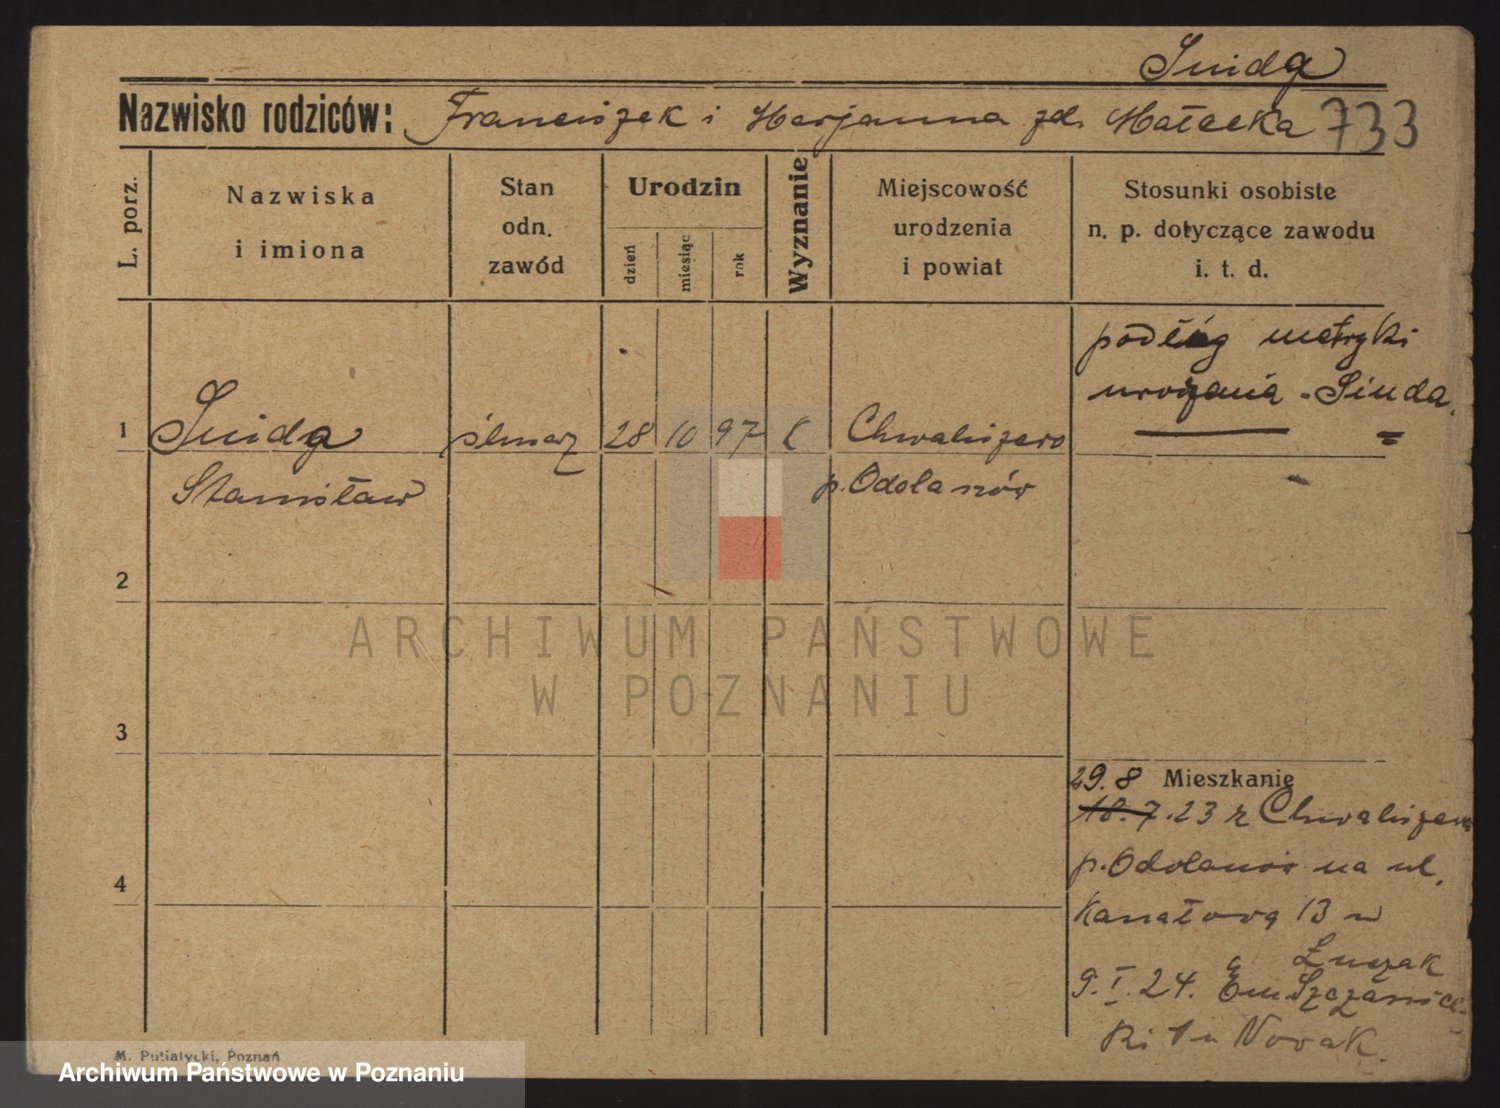 Snidą
Nazwisko rodziców: Franciszek i Marjanna zd. Małecka 733
L. porz.
Nazwiska
i imiona
Stan
odn.
zawód
Urodzin
dzień
miesiąc
rok
Wyznanie
Miejscowość
urodzenia
i powiat
Stosunki osobiste
n. p. dotyczące zawodu
i. t. d.
podług metryki
urodzenia - Sinda.
1 Snidą ślusarz 28 10 97 K Chwaliszewo
Stanisław p. Odolanów
2
3
4
29.8 Mieszkanie
18.7.23 z Chwaliszewo
p. Odolanów na ul.
Kanałową 13 u
Łuczak
9.I.24.
1 u Nowak.
M. Putiatycki, Poznań
ARCHIWUM PAŃSTWOWE
W POZNANIU
Archiwum Państwowe w Poznaniu